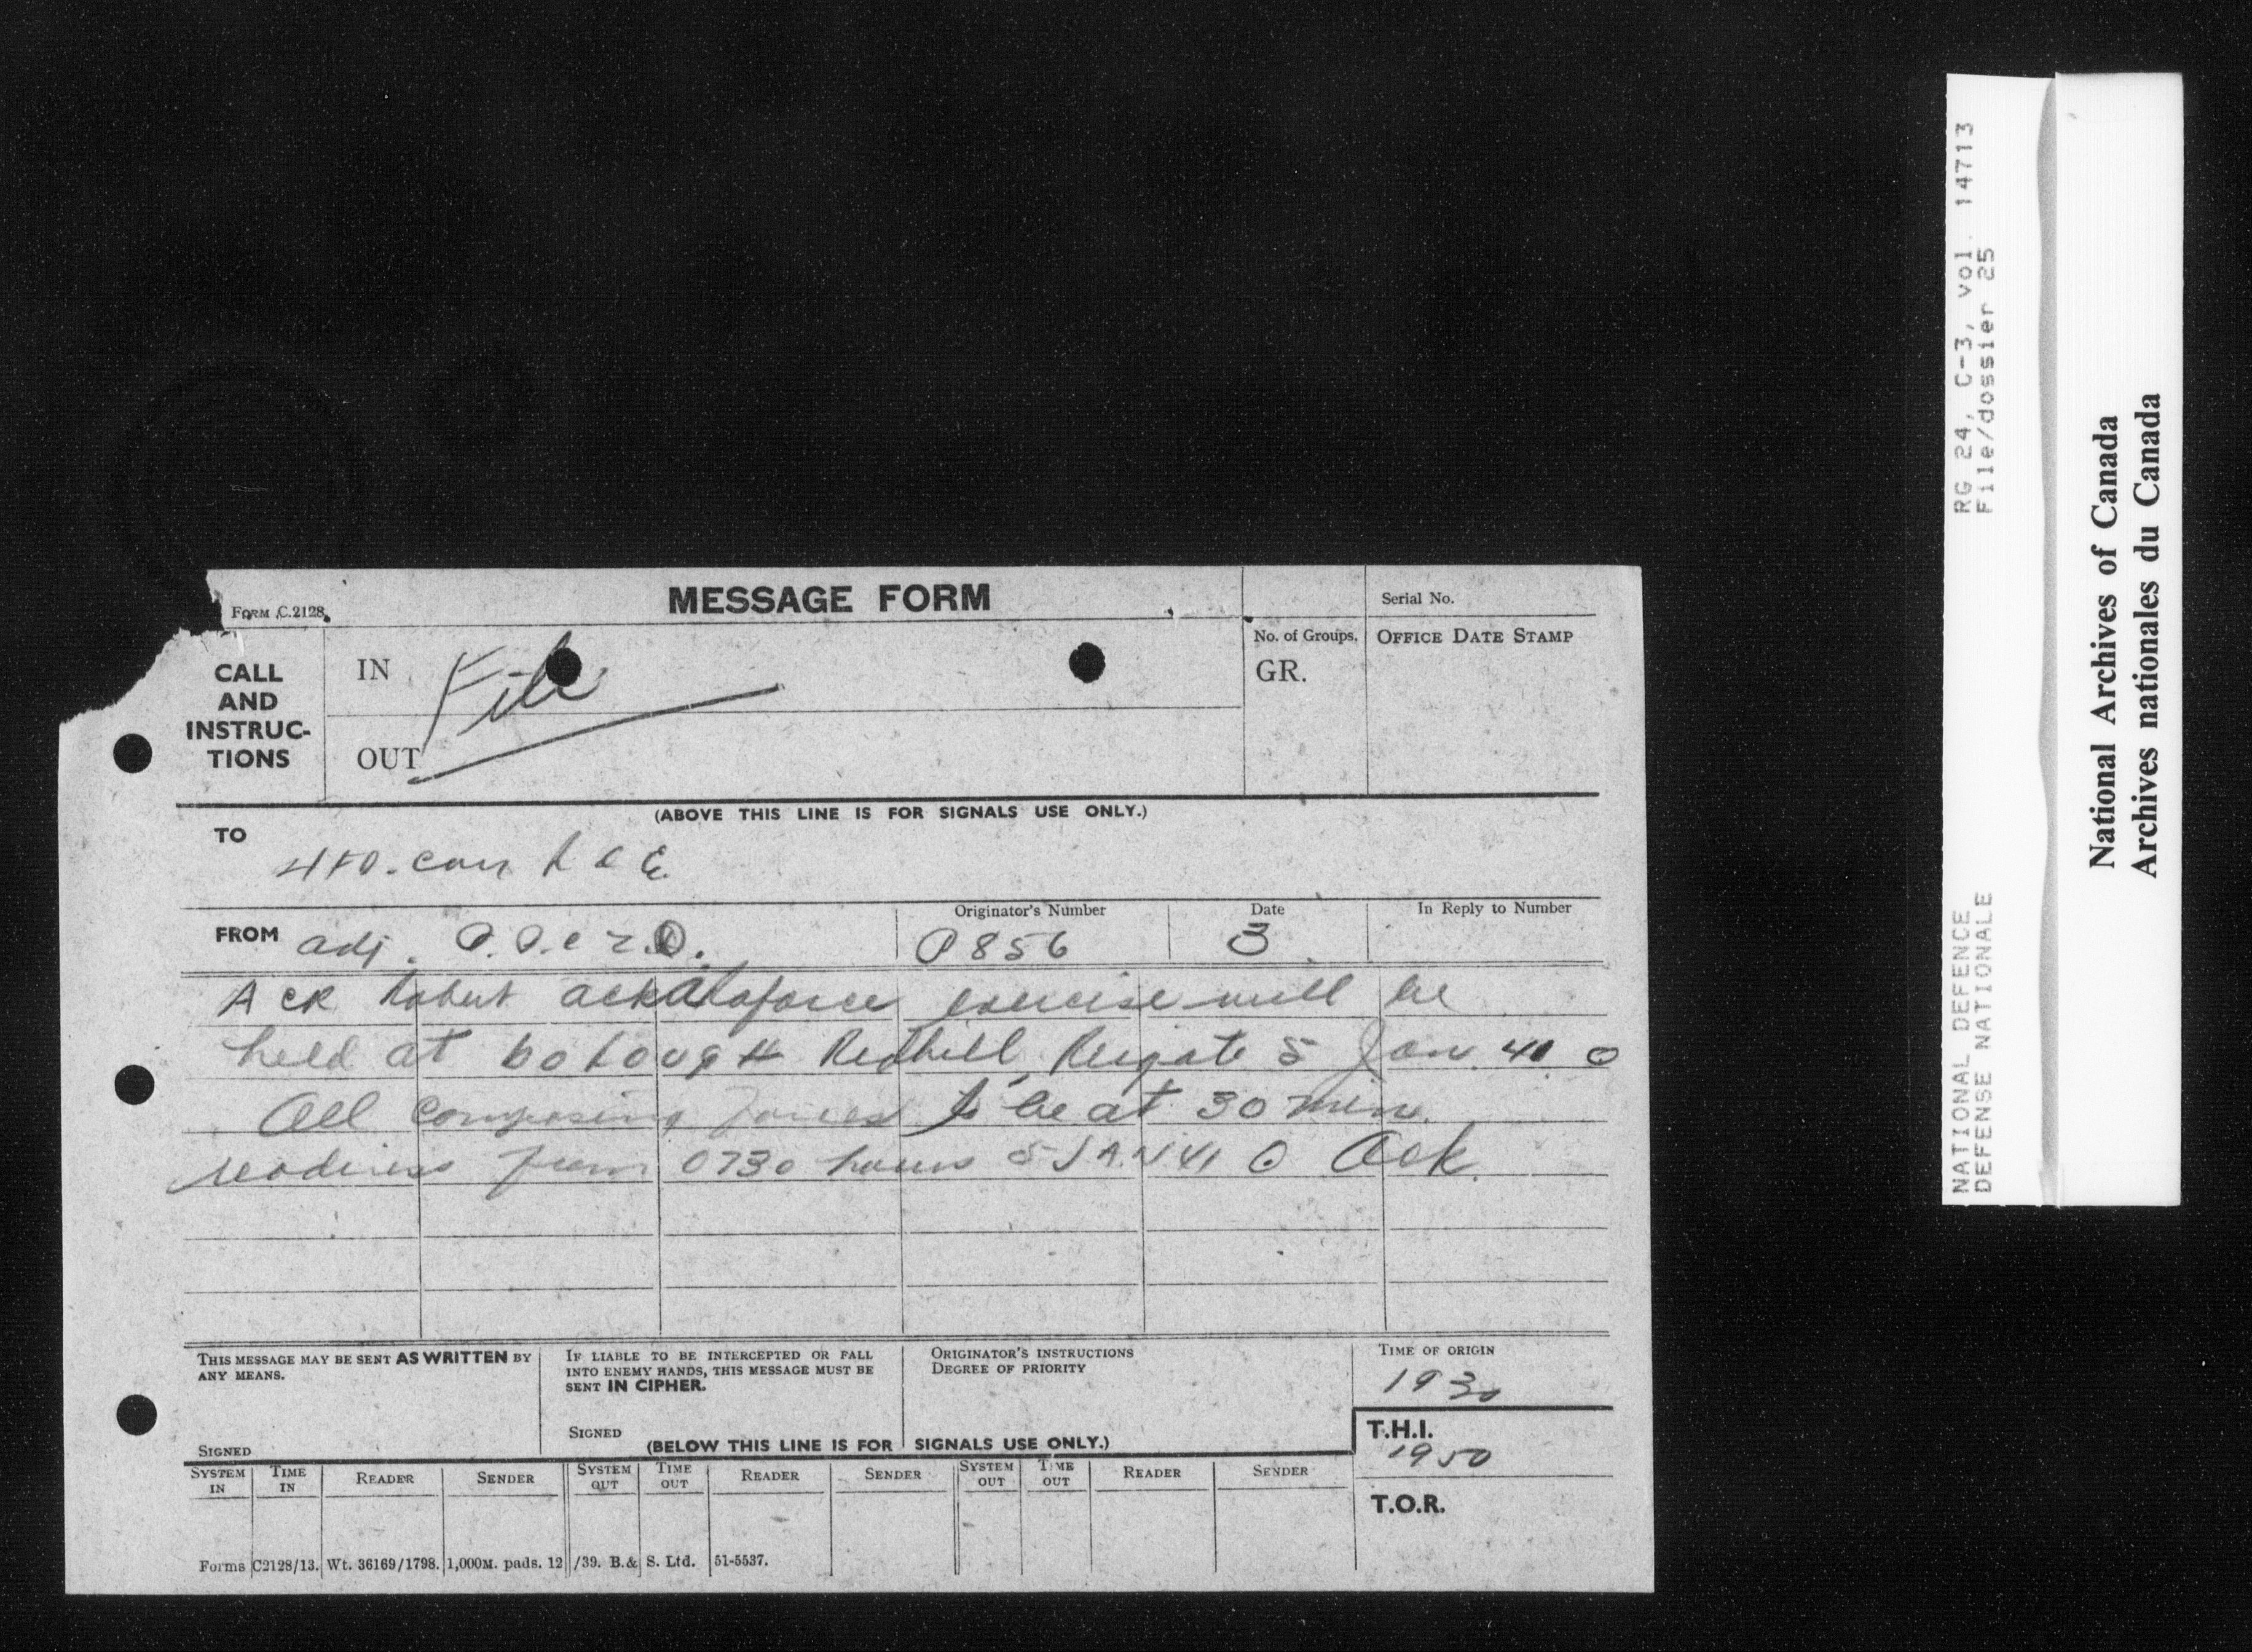 FORM C.2128.
MESSAGE FORM
Serial No.
CALL
AND
INSTRUC-
TIONS
IN
File
OUT
No. of Groups.
GR.
OFFICE DATE STAMP
(ABOVE THIS LINE IS FOR SIGNALS USE ONLY.)
TO
FROM adj.
Originator's Number
P856
Date
3
In Reply to Number
Ack exercise will be
held at borough Redhill, Reigate 5 Jan. 41 O
All composing forces to be at 30 min.
readiness from 0730 hours 5 JAN 41 O Ack.
THIS MESSAGE MAY BE SENT AS WRITTEN BY
ANY MEANS.
SIGNED
IF LIABLE TO BE INTERCEPTED OR FALL
INTO ENEMY HANDS, THIS MESSAGE MUST BE
SENT IN CIPHER.
SIGNED
ORIGINATOR'S INSTRUCTIONS
DEGREE OF PRIORITY
TIME OF ORIGIN
1930
T.H.I.
1950
T.O.R.
(BELOW THIS LINE IS FOR SIGNALS USE ONLY.)
SYSTEM IN TIME IN READER SENDER SYSTEM OUT TIME OUT READER SENDER SYSTEM OUT TIME OUT READER SENDER
Forms C2128/13. Wt. 36169/1798. 1,000M. pads. 12/39. B.& S. Ltd. 51-5537.
NATIONAL DEFENCE RG 24, C-3, vol. 14713
DEFENSE NATIONALE File/dossier 25
National Archives of Canada
Archives nationales du Canada